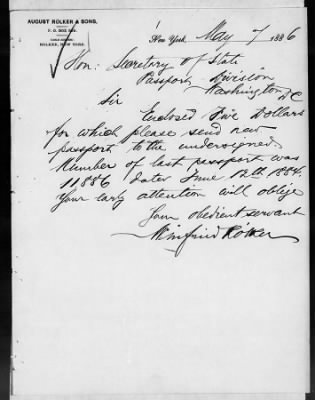 AUGUST ROLKER & SONS,
P. O. BOX
ROLKER, NEW YORK.
New York, May 7 1886
Hon: Secretary of State
Passport Division
Washington DC
Sir Enclosed Five Dollars
for which please send new
passport to the undersigned.
Number of last passport was
11886 dates June 12th 1884.
Your early attention will oblige
Your obedient servant
Winfried Rölker